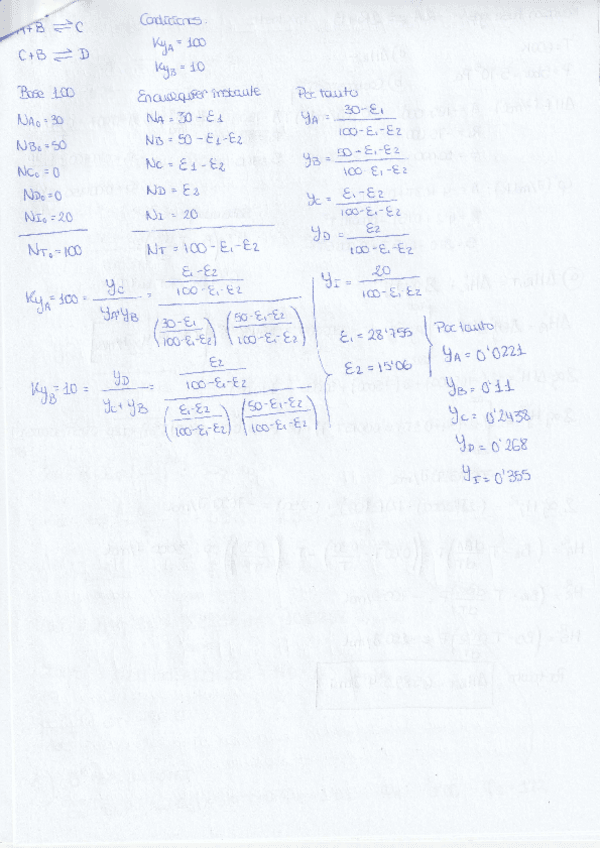 A+B ⇌ C
C+B ⇌ D
Condiciones.
KyA = 100
KyB = 10
Base 100
NA0=30
NB0=50
NC0=0
ND0=0
NI0=20
NT0=100
En cualquier instante
NA = 30-ε1
NB = 50-ε1-ε2
NC = ε1-ε2
ND = ε2
NI = 20
NT = 100-ε1-ε2
Por tanto
yA = (30-ε1)/(100-ε1-ε2)
yB = (50-ε1-ε2)/(100-ε1-ε2)
yC = (ε1-ε2)/(100-ε1-ε2)
yD = ε2/(100-ε1-ε2)
yI = 20/(100-ε1-ε2)
KyA = 100 = yC/(yA·yB) = ((ε1-ε2)/(100-ε1-ε2))/(((30-ε1)/(100-ε1-ε2)) ((50-ε1-ε2)/(100-ε1-ε2)))
KyB = 10 = yD/(yC+yB) = (ε2/(100-ε1-ε2))/(((ε1-ε2)/(100-ε1-ε2)) ((50-ε1-ε2)/(100-ε1-ε2)))
ε1 = 28'755
ε2 = 15'06
Por tanto
yA = 0'0221
yB = 0'11
yC = 0'2438
yD = 0'268
yI = 0'355